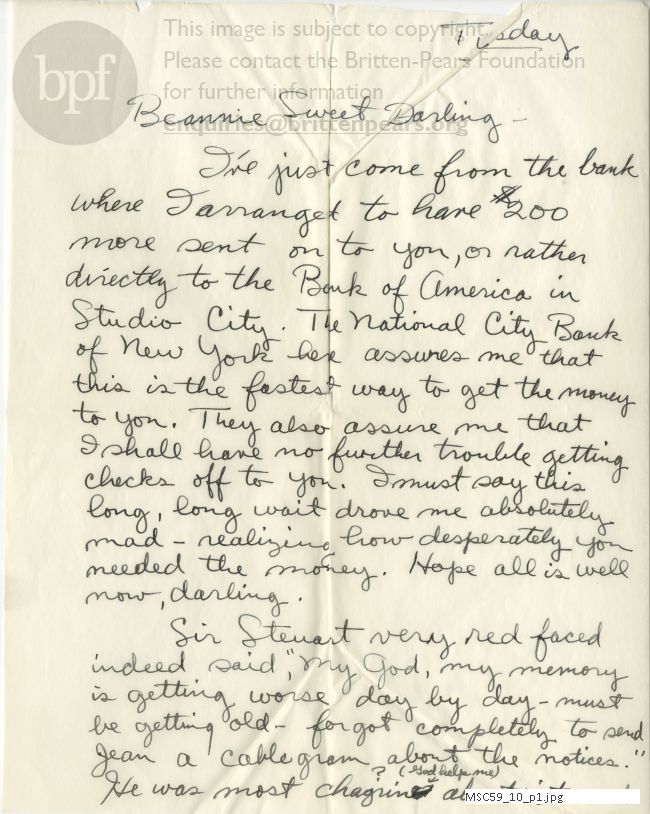 This image is subject to copyright.
Please contact the Britten-Pears Foundation
for further information
enquiries@brittenpears.org
bpf
Tuesday
Beannie Sweet Darling -
I've just come from the bank
where I arranged to have $200
more sent on to you, or rather
directly to the Bank of America in
Studio City. The National City Bank
of New York here assures me that
this is the fastest way to get the money
to you. They also assure me that
I shall have no further trouble getting
checks off to you. I must say this
long, long wait drove me absolutely
mad - realizing how desperately you
needed the money. Hope all is well
now, darling.
Sir Steuart very red faced
indeed said, "My God, my memory
is getting worse day by day - must
be getting old - forgot completely to send
Jean a cablegram about the notices."
? (God help me)
He was most chagrined
MSC59_10_p1.jpg